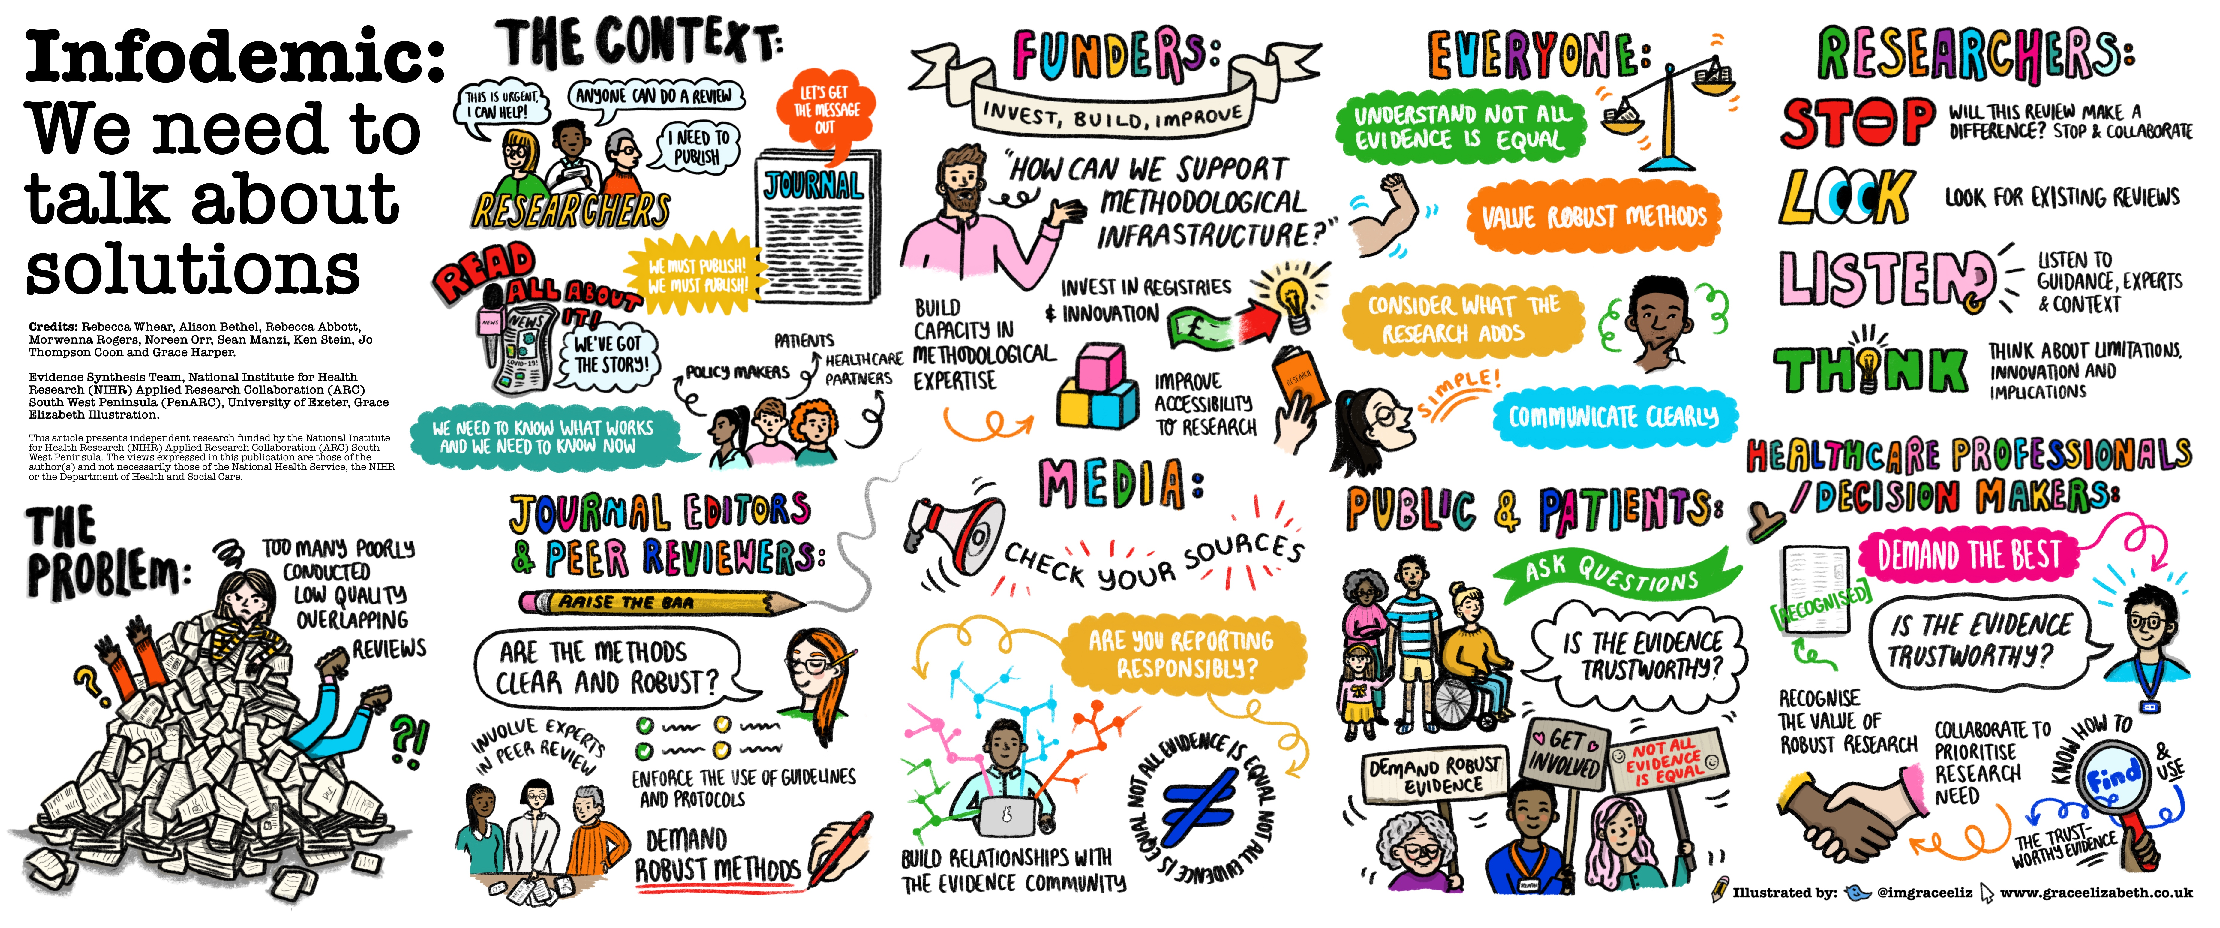 Infodemic:
We need to
talk about
solutions
Credits: Rebecca Whear, Alison Bethel, Rebecca Abbott,
Morwenna Rogers, Noreen Orr, Sean Manzi, Ken Stein, Jo
Thompson Coon and Grace Harper.
Evidence Synthesis Team, National Institute for Health
Research (NIHR) Applied Research Collaboration (ARC)
South West Peninsula (PenARC), University of Exeter, Grace
Elizabeth Illustration.
This article presents independent research funded by the National Institute
for Health Research (NIHR) Applied Research Collaboration (ARC) South
West Peninsula. The views expressed in this publication are those of the
author(s) and not necessarily those of the National Health Service, the NIHR
or the Department of Health and Social Care.
THE
PROBLEM:
TOO MANY POORLY
CONDUCTED
LOW QUALITY
OVERLAPPING
REVIEWS
?
?!
THE CONTEXT:
THIS IS URGENT,
I CAN HELP!
ANYONE CAN DO A REVIEW
I NEED TO
PUBLISH
RESEARCHERS
LET'S GET
THE MESSAGE
OUT
JOURNAL
WE MUST PUBLISH!
WE MUST PUBLISH!
READ
ALL ABOUT
IT!
NEWS
NEWS
COVID-19!
WE'VE GOT
THE STORY!
POLICY MAKERS
PATIENTS
HEALTHCARE
PARTNERS
WE NEED TO KNOW WHAT WORKS
AND WE NEED TO KNOW NOW
JOURNAL EDITORS
& PEER REVIEWERS:
RAISE THE BAR
ARE THE METHODS
CLEAR AND ROBUST?
INVOLVE EXPERTS
IN PEER REVIEW
ENFORCE THE USE OF GUIDELINES
AND PROTOCOLS
DEMAND
ROBUST METHODS
FUNDERS:
INVEST, BUILD, IMPROVE
"HOW CAN WE SUPPORT
METHODOLOGICAL
INFRASTRUCTURE?"
BUILD
CAPACITY IN
METHODOLOGICAL
EXPERTISE
INVEST IN REGISTRIES
& INNOVATION
£
IMPROVE
ACCESSIBILITY
TO RESEARCH
RESEARCH
MEDIA:
CHECK YOUR SOURCES
ARE YOU REPORTING
RESPONSIBLY?
BUILD RELATIONSHIPS WITH
THE EVIDENCE COMMUNITY
NOT ALL EVIDENCE IS EQUAL NOT ALL EVIDENCE IS EQUAL
≠
EVERYONE:
UNDERSTAND NOT ALL
EVIDENCE IS EQUAL
VALUE ROBUST METHODS
CONSIDER WHAT THE
RESEARCH ADDS
SIMPLE!
COMMUNICATE CLEARLY
PUBLIC & PATIENTS:
ASK QUESTIONS
IS THE EVIDENCE
TRUSTWORTHY?
DEMAND ROBUST
EVIDENCE
GET
INVOLVED
NOT ALL
EVIDENCE
IS EQUAL
RESEARCHERS:
STOP
WILL THIS REVIEW MAKE A
DIFFERENCE? STOP & COLLABORATE
LOOK
LOOK FOR EXISTING REVIEWS
LISTEN
LISTEN TO
GUIDANCE, EXPERTS
& CONTEXT
THINK
THINK ABOUT LIMITATIONS,
INNOVATION AND
IMPLICATIONS
HEALTHCARE PROFESSIONALS
/DECISION MAKERS:
DEMAND THE BEST
[RECOGNISED]
IS THE EVIDENCE
TRUSTWORTHY?
RECOGNISE
THE VALUE OF
ROBUST RESEARCH
COLLABORATE TO
PRIORITISE
RESEARCH
NEED
KNOW HOW TO
Find
& USE
THE TRUST-
WORTHY EVIDENCE
Illustrated by: @imgraceeliz www.graceelizabeth.co.uk